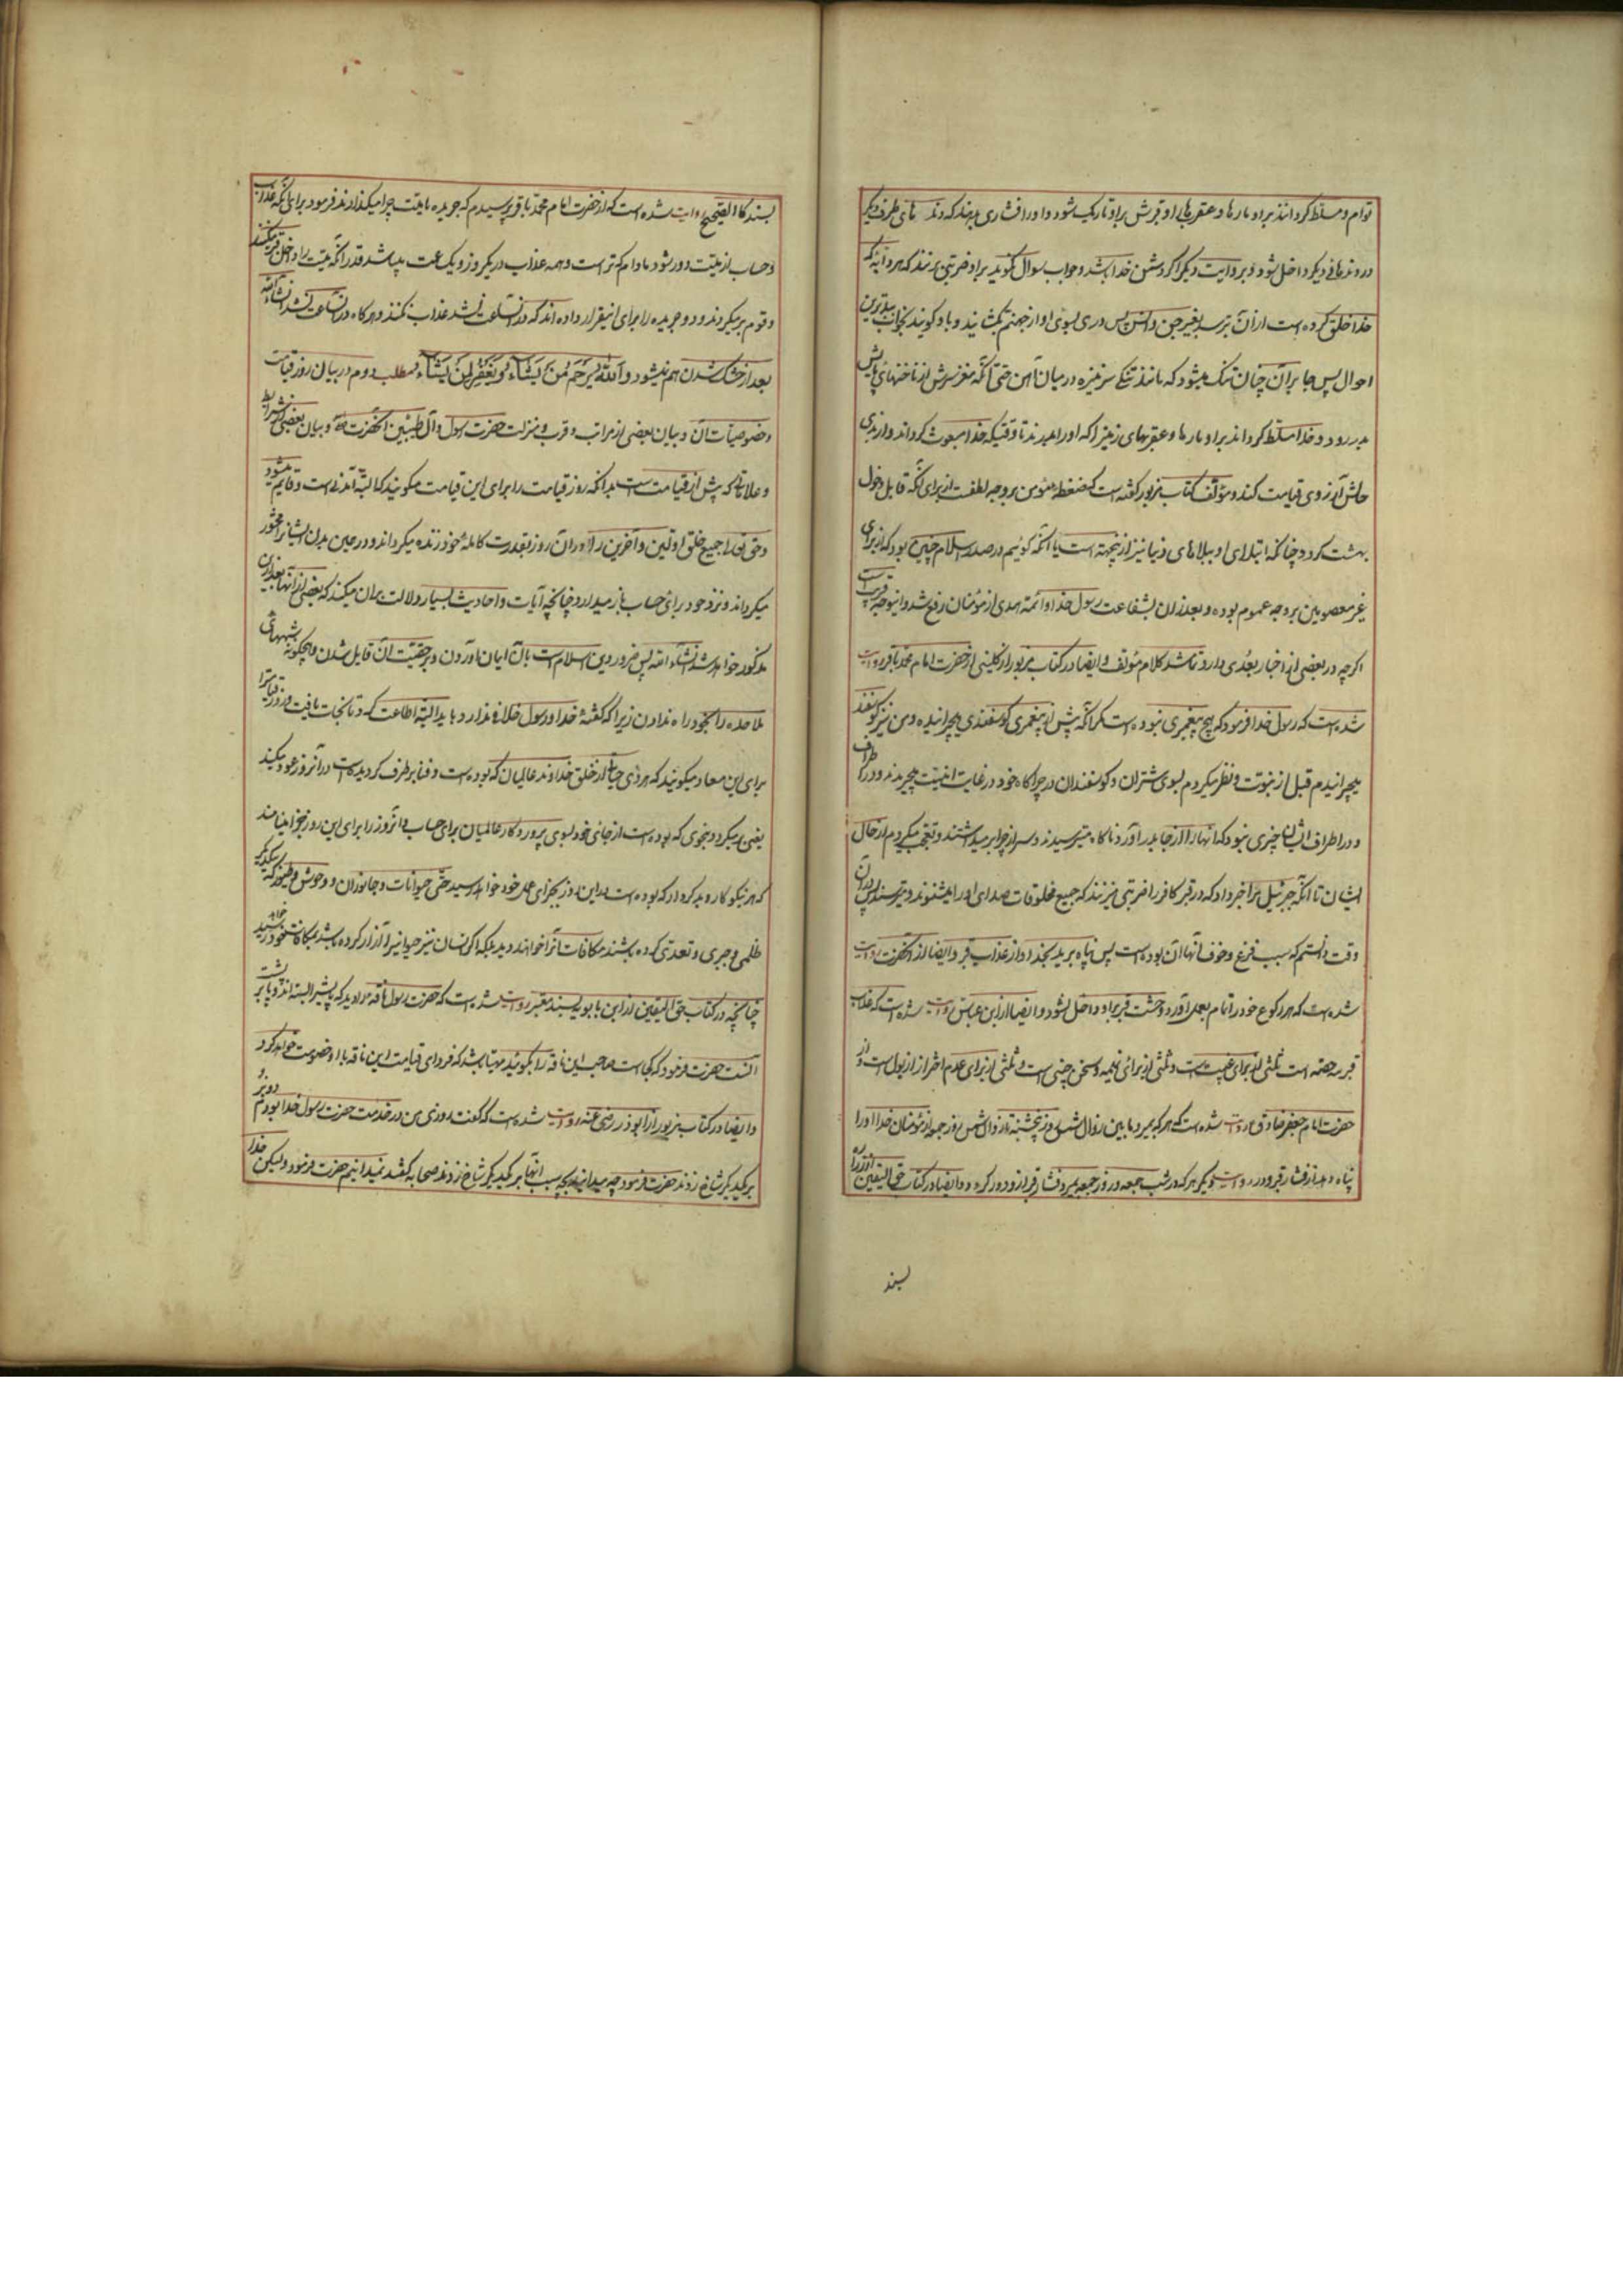 توام و مسلط کردانند بر او مارها و عقربها و قبرش بر او تاریک شود و او را فشاری بدهند که دنده های طرف دیگر
در دندهای دیگر داخل شود و بروایت دیگر اگر دشمن خدا باشد و جواب سوال نگوید بر او ضربتی بزنند که هر دابهٔ که
خدا خلق کرده است از آن بترسد بغیر جن و انس پس دری بسوی او از جهنم بکشایند و باو کویند بخواب ببدترین
احوال پس جا بر آن چنان تنک میشود که مانند تنکی سر نیزه در میان آهن حتی آنکه مغز سرش از ناخنهای پایش
بدر رود و خدا مسلط کرداند بر او مارها و عقربهای زمین را که او را میزنند تا وقتیکه خدا مبعوث کرداند و از بدی
حالش آرزوی قیامت کند و مؤلف کتاب مزبور کفته است که ضغطه مؤمن بر وجه لطفست از برای آنکه قابل دخول
بهشت کردد چنانکه ابتلای او ببلاهای دنیا نیز از اینجهته است یا آنکه کوئیم در صدر اسلام چنین بود که از برای
غیر معصومین بر وجه عموم بوده و بعد از آن بشفاعت رسول خدا و ائمه هدی از مؤمنان رفع شد و اینوجه قریب است
اکرچه در بعضی از اخبار بعدی دارد تا شد کلام مؤلف و ایضا در کتاب مزبور از کلینی از حضرت امام محمد باقر روایت
شده است که رسول خدا فرمود که هیچ پیغمبری نبوده است مکر آنکه پیش از پیغمبری کوسفندی میچرانیده و من نیز کوسفند
میچرانیدم قبل از نبوت و نظر میکردم بسوی شتران و کوسفندان در چراکاه خود در غایت امنیت میچریدند و در اطراف
و در اطراف ایشان چیزی نبود که آنها را از جا بدر آورد ناکاه میترسیدند و سر از چرا بر میداشتند و تعجب میکردم از حال
ایشان تا آنکه جبرئیل مرا خبر داد که در قبر کافر را ضربتی میزنند که جمیع مخلوقات صدای او را میشنوند و میترسند پس در آن
وقت دانستم که سبب فزع و خوف آنها آن بوده است پس پناه برید بخدا و از عذاب قبر و ایضا از آنحضرت روایت
شده است که هر که رکوع خود را تمام بعمل آورد وحشت قبر بر او داخل نشود و ایضا از ابن عباس روایت شده است که عذاب
قبر سه حصه است ثلثی از برای غیبت است و ثلثی از برای نمیمه و سخن چینی است و ثلثی از برای عدم احتراز از بول است و از
حضرت امام جعفر صادق روایت شده است که هر که بمیرد ما بین زوال شمس روز پنجشنبه تا زوال شمس روز جمعه از مؤمنان خدا او را
پناه دهد از فشار قبر و در روایت دیگر هر که در شب جمعه و روز جمعه بمیرد فشار قبر از او دور کردد و ایضا در کتاب حق الیقین از زراره
بسند
بسند کالصحیح روایت شده است که از حضرت امام محمد باقر پرسیدم که جریده با میت چرا میکذارند فرمود برای آنکه عذاب
و حساب از میت دور شود مادام که تر است و همه عذاب در یکروز و یک ساعت میباشد قدر آنکه میت را داخل قبر میکنند
و قوم بر میکردند و دو جریده را برای اینقرار داده اند که در آنساعت باشد عذاب نکنند و هرکاه در آنساعت نشد انشاء الله
بعد از خشک شدن هم نمیشود و الله یرحم لمن یشاء و یغفر لمن یشاء مطلب دوم در بیان روز قیامت
و خصوصیات آن و بیان بعضی از مراتب و قرب و منزلت حضرت رسول و آل طیبین آنحضرت و بیان بعضی از شرایط
و علاماتی که پیش از قیامت است بدانکه روز قیامت را برای این قیامت میکویند که البته آمدنی است و قایم میشود
و حق تعالی جمیع خلق اولین و آخرین را در آن روز بقدرت کامله خود زنده میکرداند و در همین بدن ایشانرا محشور
میکرداند و نزد خود برای حساب باز میدارد چنانچه آیات و احادیث بسیار دلالت بر آن میکند که بعضی از آنها بعد از این
مذکور خواهد شد انشاء الله پس ضرور دین اسلام است بآن ایمان آوردن و بر حقیت آن قایل شدن و هیچکونه شبههای
ملاحده را بخود راه ندادن زیرا که کفتهٔ خدا و رسول خلاف ندارد و باید البته اطاعت کرد تا نجات یافت و روز قیامترا
برای این معاد میکویند که هر ذی حیاتی از خلق خداوند عالمیان که بوده است و فنا بر طرف کردیده است در آنروز عود میکند
یعنی بر میکردد بنحوی که بوده است از جای خود بسوی پروردکار عالمیان برای حساب و آنروز را برای این روز جزا مینامند
که هر نیکوکار و بدکردار که بوده است در این روز بجزای عمل خود خواهد رسید حتی حیوانات و جانوران و وحوش و طیور که بیکدیگر
ظلمی و جبری و تعدی کرده باشند مکافات آنرا خواهند دید بلکه اکر انسان نیز حیوانیرا آزار کرده باشد بمکافات خود خواهد رسید
چنانچه در کتاب حق الیقین از ابن بابویه بسند معتبر روایت شده است که حضرت رسول ناقه را دید که پایش را بسته اند و بار بر پشت
آنست حضرت فرمود که کجاست صاحب این ناقه را بکوئید مهیا باشد که فردای قیامت این ناقه با او خصومت خواهد کرد
و ایضا در کتاب مزبور از ابوذر رضی عنه روایت شده است که کفت روزی من در خدمت حضرت رسول خدا بودم و دو بز
بر یکدیکر شاخ زدند حضرت فرمود چه میدانید که بچه سبب اینها بر یکدیکر شاخ زدند صحابه کفتند نمیدانیم حضرت فرمود و لیکن خدا